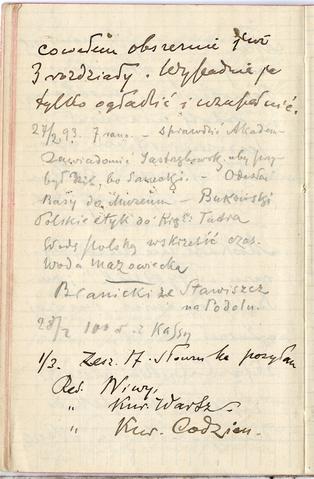 cowałem obszernie
3 rozdziały. Wypadnie je
tylko ogładzić i uzupełnić.
27/2 93. 7 rano. — Sprawdzić Akadem.
Zawiadomić Jastrzębowsk. aby przy-
był
do Muzeum — Bukowski
Polskie etyk. do Ks. Tatra
Wódę polską wskrześić czas.
Woda mazowiecka
Branicki ze Stawiszcz
na Podolu.
28/2 100 r. z Kassy
1/3. Zesz. 17. słownika posyłam
Red. Niwy.
" Kur. Warsz.
" Kur. Codzien.